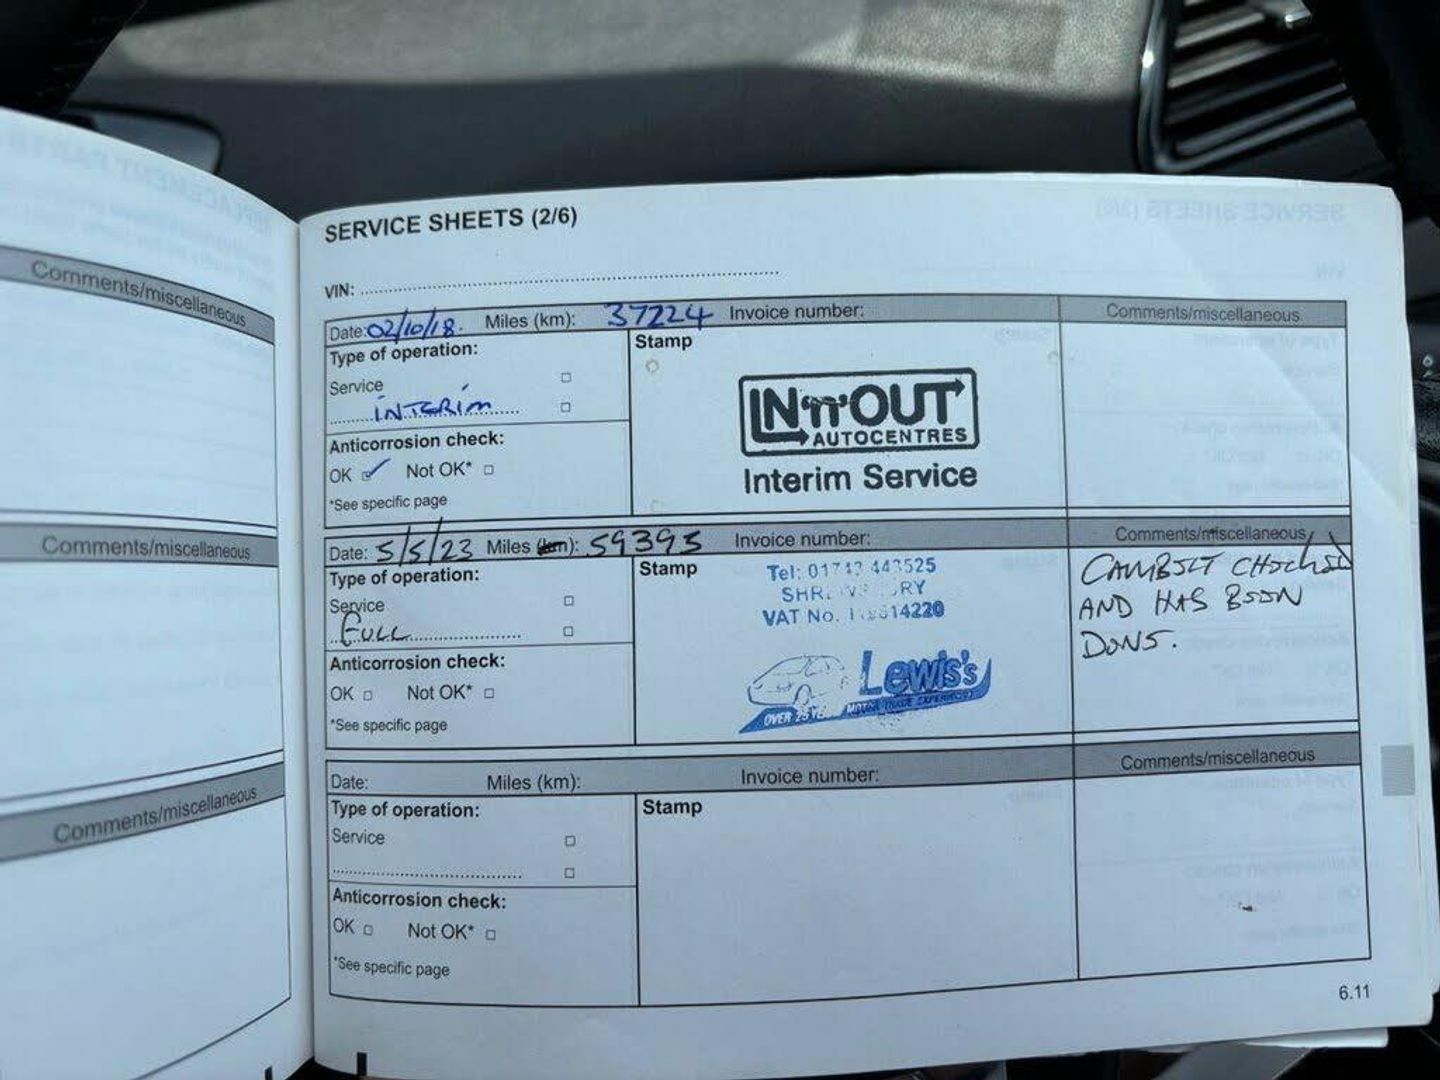 Comments/miscellaneous
Comments/miscellaneous
Comments/miscellaneous
SERVICE SHEETS (2/6)
VIN:
Date: 02/10/18. Miles (km): 37224 Invoice number: Comments/miscellaneous
Type of operation:
Service
INTERIM
Anticorrosion check:
OK Not OK*
*See specific page
Stamp
IN'n'OUT
AUTOCENTRES
Interim Service
Date: 5/5/23 Miles (km): 59395 Invoice number: Comments/miscellaneous
Type of operation:
Service
FULL
Anticorrosion check:
OK Not OK*
*See specific page
Stamp
Tel: 01743 443525
VAT No.
Lewis's
OVER 25 MOTOR TRADE EXPERIENCE
CAMBELT CHECKED
AND HAS BEEN
DONE.
Date: Miles (km): Invoice number: Comments/miscellaneous
Type of operation:
Service
Anticorrosion check:
OK Not OK*
*See specific page
Stamp
6.11